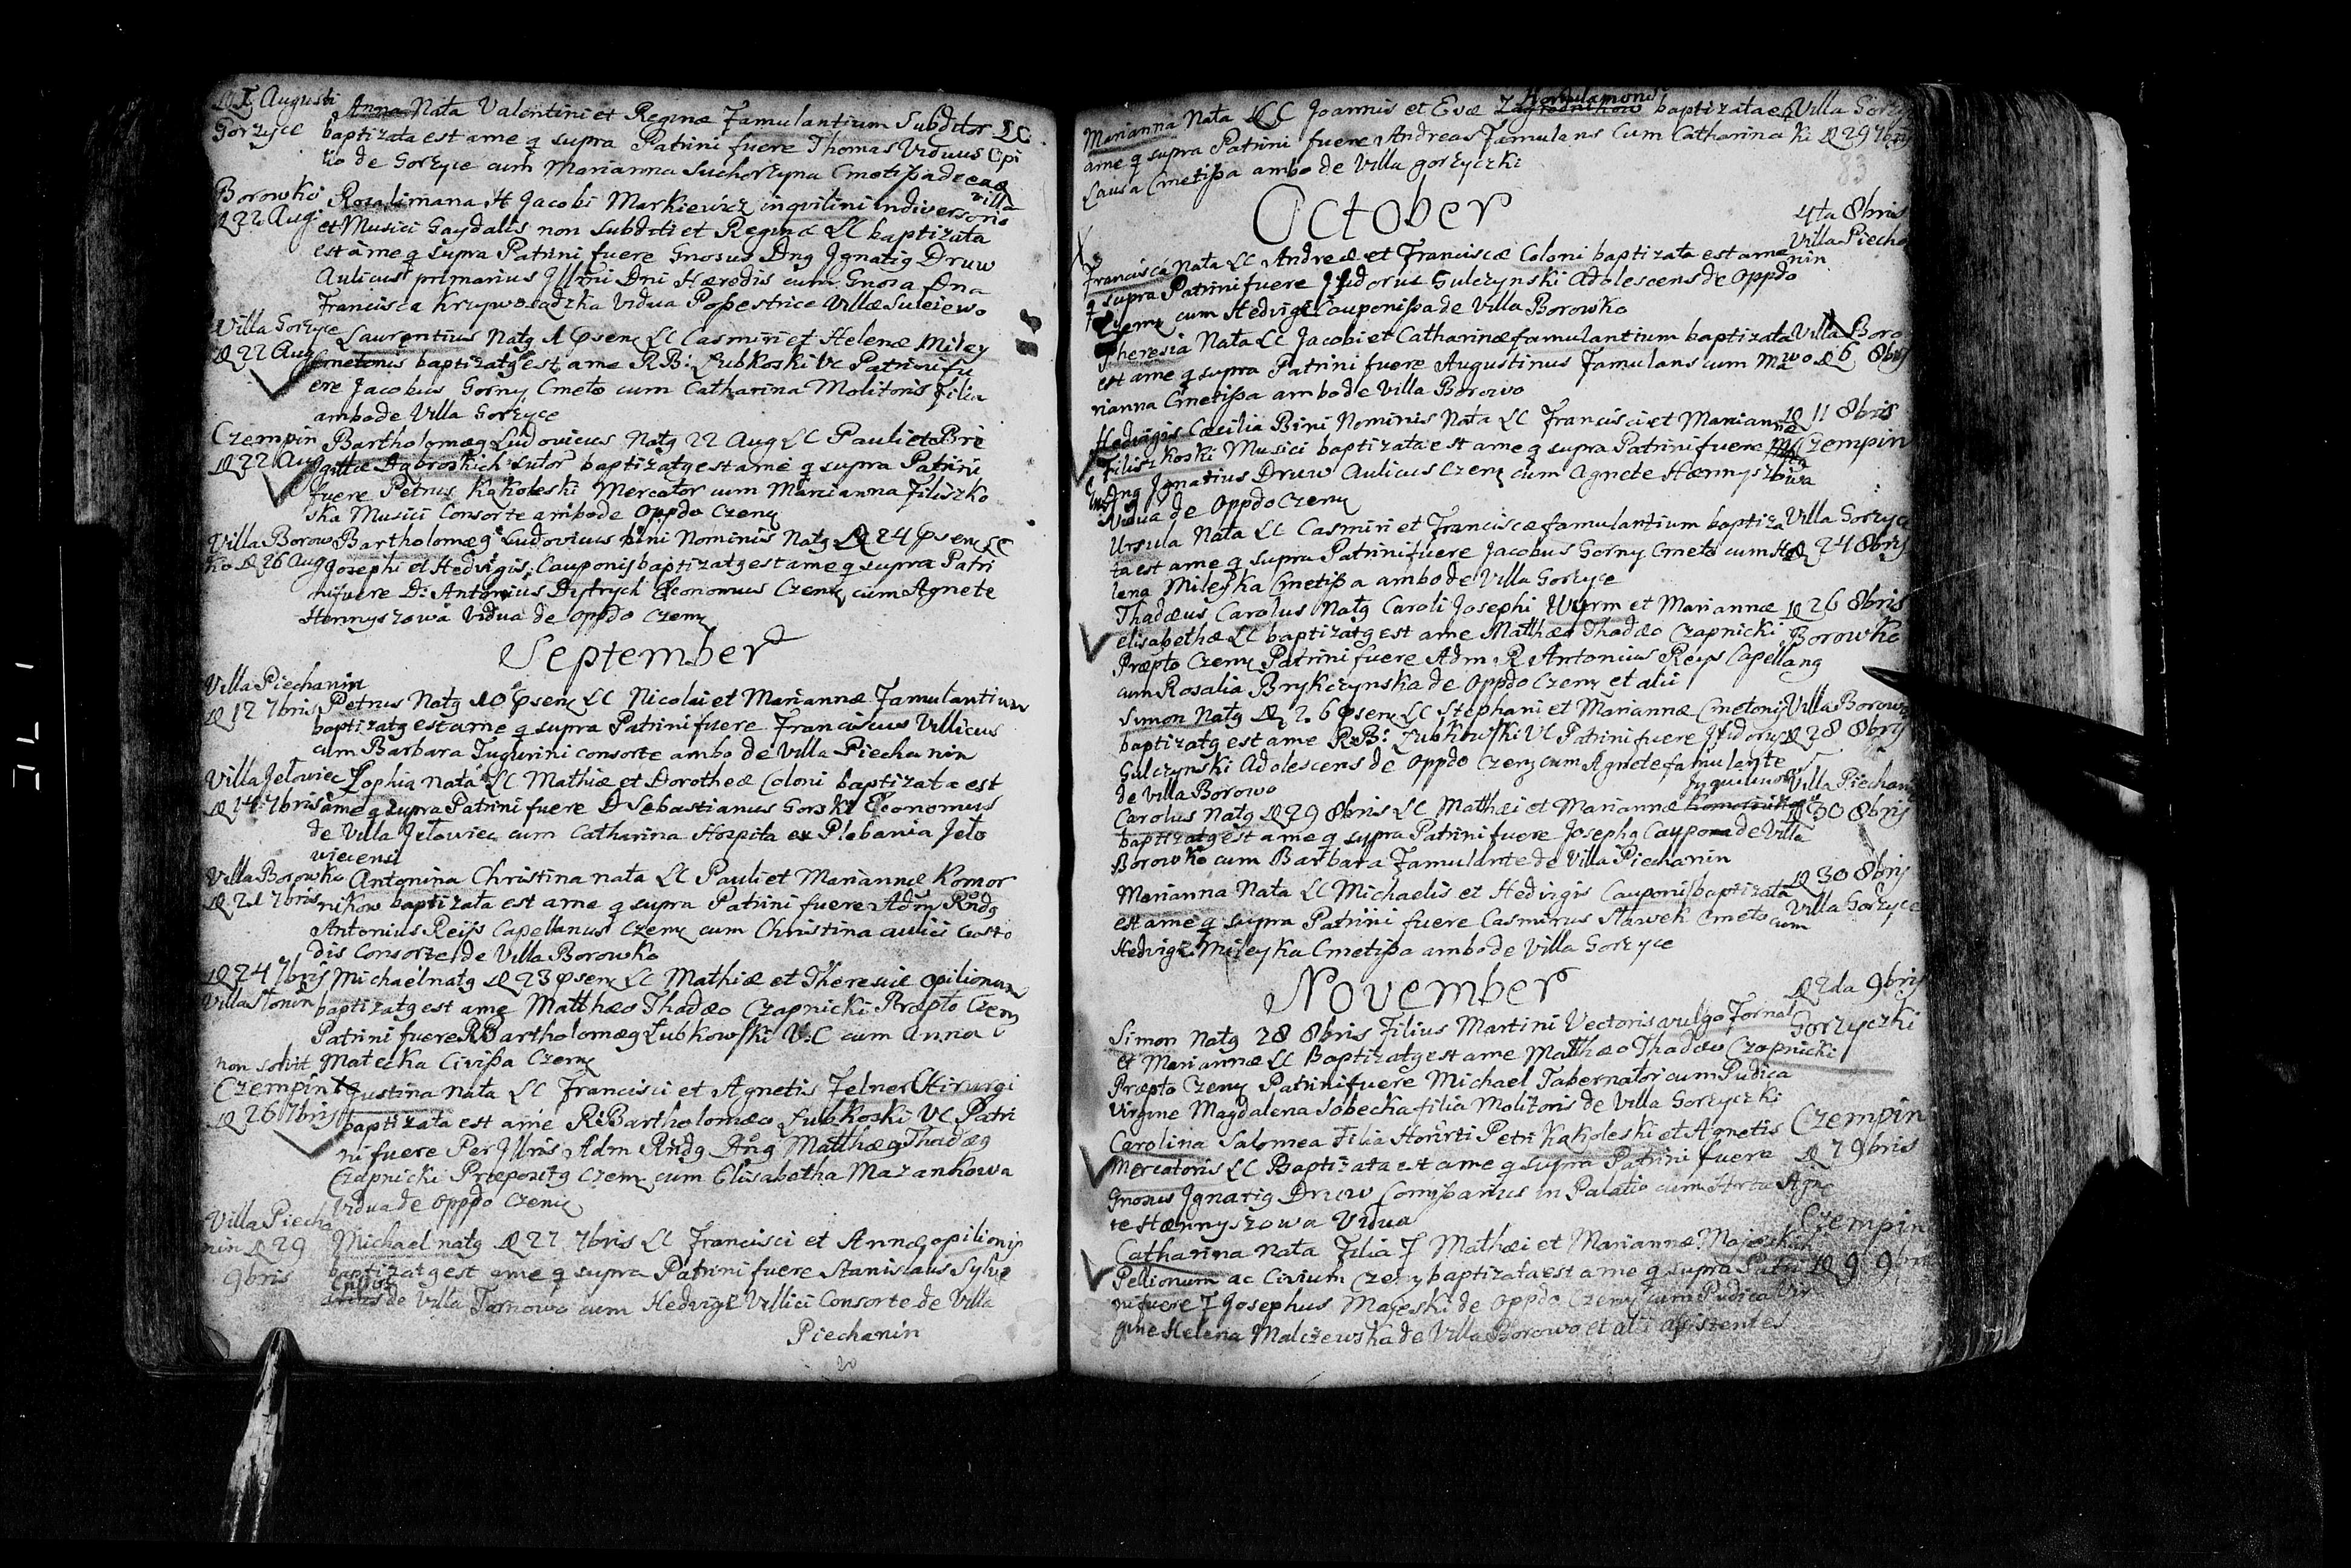 Augusti
Gorzyce
Anna Nata Valentini et Reginæ Famulantium Subditor LC
baptizata est a me q supra Patrini fuere Thomas Viduus Opi
lio de Gorzyce cum Marianna Suchorzyna Cmetißa de ead
villa
Borowko
D 22 Aug
Rosalimana H Jacobi Markiewicz inquilini in diversorio
et Musici Gaydalis non Subditi et Reginæ LC baptizata
est a me q supra Patrini fuere Gnosus Dng Ignatig Druw
Aulicus primarius Illtri Dni Hæredis cum Gnosa Dna
Francisca Krzywosadzka Vidua Poßestrice Villæ Suleiewo
Villa Gorzyce
D 22 Aug
Laurentius Natg psenȩ LC Casmiri et Helenæ Miley
Cmetonis baptizatg est a me RB: Lubkoski VC Patrini fu
ere Jacobus Gorny Cmeto cum Catharina Molitoris filia
ambo de Villa Gorzyce
Czempin
D 22 Aug
Bartholomæg Ludovicus Natg 22 Aug LC Pauli et Bri
gittæ Agbroskich Sutor baptizatg est a me q supra Patrini
fuere Petrus Kąkoleski Mercator cum Marianna Filiszko
ska Musici Consorte ambo de Oppdo Czem
Villa Borow
ko D 26 Aug
Bartholomæg Ludovicus bini Nominis Natg D 24 psen LC
Josephi et Hedvigis Cauponis baptizatg est a me q supra Patri
ni fuere D: Antonius Dystrych Œconomus Czem cum Agnete
Hennyszowa Vidua de Oppdo Czem
September
Villa Piechanin
D 12 7bris
Petrus Natg 10 psen LC Nicolai et Mariannæ Famulantium
baptizatg est a me q supra Patrini fuere Franciscus Villicus
cum Barbara Tugurini consorte ambo de Villa Piechanin
Villa Jełowiec
D 14 7bris
Zophia nata LC Mathiæ et Dorotheæ Coloni baptizata est
a me q supra Patrini fuere D Sebastianus Gorski Œconomus
de Villa Jełowiec cum Catharina Hospita ex Plebania Jeło
wiecensi
Villa Borowko
D 21 7bris
Antonina Christina nata LC Pauli et Mariannæ Komor
nikow baptizata est a me q supra Patrini fuere Adm Rndg
Antonius Reiis Capellanus Czem cum Christina aulici Custo
dis Consorte de Villa Borowko
D 24 7bris
Villa Słonin
Michael natg D 23 psen LC Mathiæ et Theresiæ opilionum
baptizatg est a me Matthæo Thadæo Czapnicki Præpto Czem
Patrini fuere R Bartholomæg Łubkowski V.C cum Anna
non solvit
Matecka Civißa Czem
Czempin
D 26 7bris
Justina nata LC Francisci et Agnetis Felner Chirurgi
baptizata est a me R Bartholomæo Lubkoski VC Patri
ni fuere Per Illris Adm Rndg Dng Matthæg Thadæg
Czapnicki Præpositg Czem cum Elisabetha Mazankowa
Vidua de Opppdo Czem
Villa Piecha
nin D 29
9bris
Michael natg D 27 7bris LC Francisci et Annæ opilionis
baptizatg est a me q supra Patrini fuere Stanislaus Sylve
de Villa Tarnowo cum Hedvige Villici Consorte de Villa
Piechanin
20
Hortulanoris
Marianna Nata LC Joannis et Evæ Zagrodnikow baptizata e
Villa Gorzycz
ki D 29 7bris
83
a me q supra Patrini fuere Andreas Famulans cum Catharina
Cmetißa ambo de Villa gorzyczki
October
4ta 8bris
Villa Piecha
nin
Francisca Nata LC Andreæ et Franciscæ Coloni baptizata est a me
q supra Patrini fuere Isidorus Gulczynski Adolescens de Oppdo
Czem cum Hedvige Cauponißa de Villa Borowko
Theresia Nata LC Jacobi et Catharinæ famulantium baptizata
Villa Boro
wo D 6 8bris
est a me q supra Patrini fuere Augustinus Famulans cum Ma
rianna Cmetißa ambo de Villa Borowo
Hedvigis Cæcilia Bini Nominis Nata LC Francisci et Mariannæ
D 11 8bris
Czempin
Filiszkoski Musici baptizata est a me q supra Patrini fuere
Dng Ignatius Druw Aulicus Czem cum Agnete Hænnyszowa
Vidua de Oppdo Czem
Ursula Nata LC Casmiri et Franciscæ famulantium baptiza
Villa Gorzyce
D 24 8bris
ta est a me q supra Patrini fuere Jacobus Gorny Cmeto cum He
lena Mileyka Cmetißa ambo de Villa Gorzyce
Thadæus Carolus Natg Caroli Josephi Wurm et Mariannæ
D 26 8bris
Borowko
elisabethæ LC baptizatg est a me Matthæo Thadæo Czapnicki
Præpto Czem Patrini fuere Adm R Antonius Reys Capellang
cum Rosalia Brykczynska de Oppdo Czem et alii
Simon Natg D 26 psen LC Stephani et Mariannæ Cmetonis
Villa Borowo
D 28 8bris
baptizatg est a me R B: Lubkowski VC Patrini fuere Isidorus
Gulczynski Adolescens de Oppdo Czem cum Agnete famulante
de Villa Borowo
Inquilinor
Villa Piechanin
D 30 8bris
Carolus Natg D 29 8bris LC Matthæi et Mariannæ Komornikow
baptizatg est a me q supra Patrini fuere Josephg Caupo de Villa
Borowko cum Barbara Famulante de Villa Piechanin
Marianna Nata LC Michaelis et Hedvigis Cauponis baptizata
D 30 8bris
Villa Gorzyce
est a me q supra Patrini fuere Casmirus Stawek Cmeto cum
Hedvige Mileyka Cmetißa ambo de Villa Gorzyce
November
D 2da 9bris
Gorzyczki
Simon Natg 28 8bris Filius Martini Vectoris vulgo Fornal
et Mariannæ LC Baptizatg est a me Matthæo Thadæo Czapnicki
Præpto Czem Patrini fuere Michael Tabernator cum Pudica
Virgine Magdalena Sobecka filia Molitoris de Villa Gorzyczki
Carolina Salomea Filia Petri Kąkoleski et Agnetis
Czempin
D 7 9bris
Mercatoris LC Baptizata est a me q supra Patrini fuere
Gnosus Ignatig Druw Comißarius in Palatio cum Agne
te Hænnyszowa Vidua
Czempin
D 9 9bris
Catharina nata Filia F Mathæi et Mariannæ Majeskich
Pellionum ac Civium Czem baptizata est a me q supra Patri
ni fuere F Josephus Majeski de Oppdo Czem cum Pudica Vir
gine Helena Malczewska de Villa Borowo et alii aßistentes